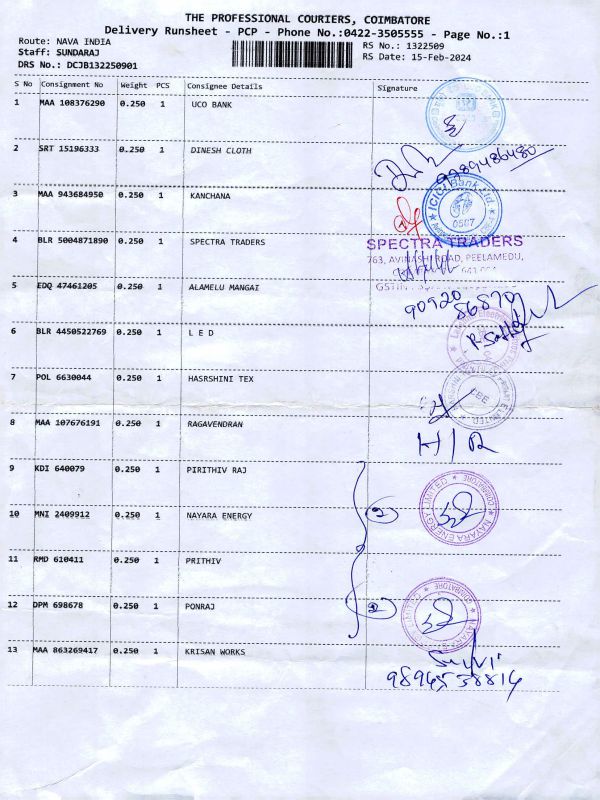 THE PROFESSIONAL COURIERS, COIMBATORE
Delivery Runsheet - PCP - Phone No.:0422-3505555 - Page No.:1
Route: NAVA INDIA
Staff: SUNDARAJ
DRS No.: DCJB132250901
RS No.: 1322509
RS Date: 15-Feb-2024
S No Consignment No Weight PCS Consignee Details Signature
1 MAA 108376290 0.250 1 UCO BANK
2 SRT 15196333 0.250 1 DINESH CLOTH
9789486480
3 MAA 943684950 0.250 1 KANCHANA
ICICI Bank Ltd.
0507
4 BLR 5004871890 0.250 1 SPECTRA TRADERS
SPECTRA TRADERS
763, AVINASHI ROAD, PEELAMEDU,
GSTIN
5 EDQ 47461205 0.250 1 ALAMELU MANGAI
90920
56870
6 BLR 4450522769 0.250 1 L E D
7 POL 6630044 0.250 1 HASRSHINI TEX
8 MAA 107676191 0.250 1 RAGAVENDRAN
H/R
9 KDI 640079 0.250 1 PIRITHIV RAJ
10 MNI 2409912 0.250 1 NAYARA ENERGY
2
NAYARA ENERGY LIMITED
COIMBATORE
11 RMD 610411 0.250 1 PRITHIV
12 DPM 698678 0.250 1 PONRAJ
2
13 MAA 863269417 0.250 1 KRISAN WORKS